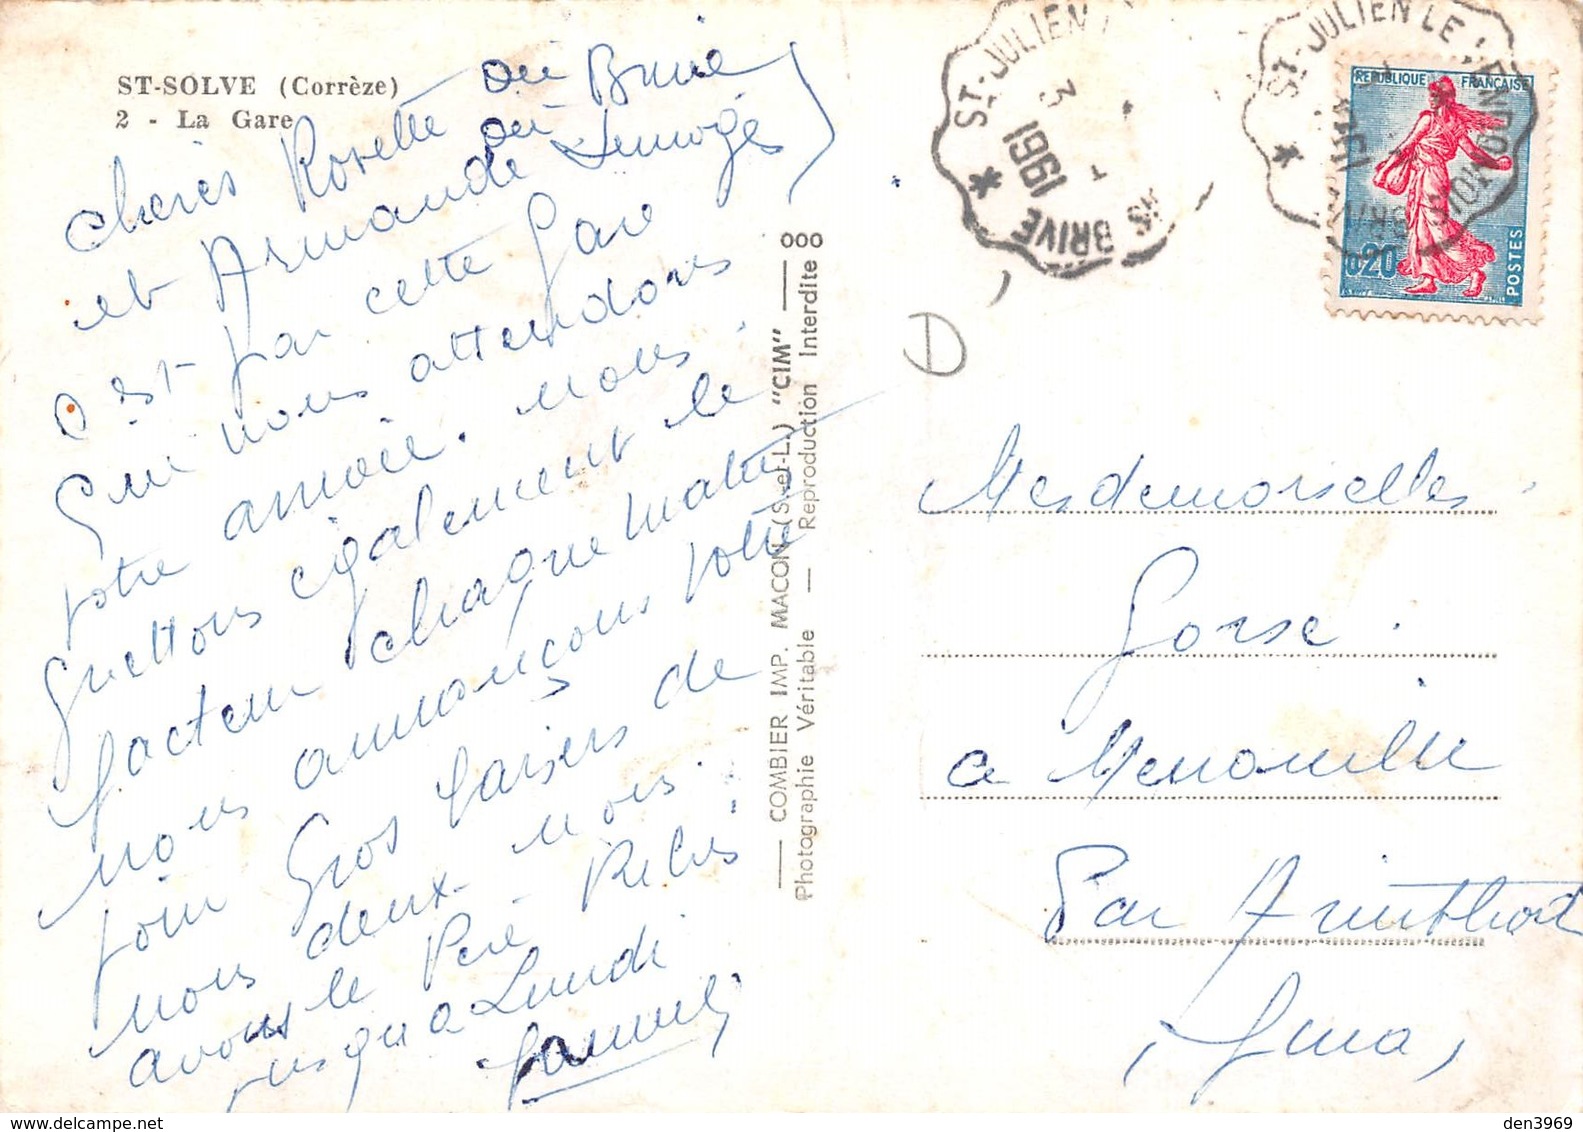 ST-SOLVE (Corrèze)
2 - La Gare
Chères Rosette ou Brive
et Armande ou Limoges)
C'est par cette Gare
que nous attendons
votre arrivée. Nous
guettons également le
facteur chaque matin
nous annonçons votre
Gros baisers de
nous deux
avons le Père
jusqu'à Lundi
COMBIER IMP. MACON (S.-et-L.) "CIM"
Photographie Véritable — Reproduction Interdite
ST-JULIEN
3
1961
BRIVE
ST-JULIEN LE VENDOMOIS
BRIVE
REPUBLIQUE FRANÇAISE
0,20
POSTES
D
Mesdemoiselles
Gorse
à Menouille
Par Arinthod
Jura
den3969